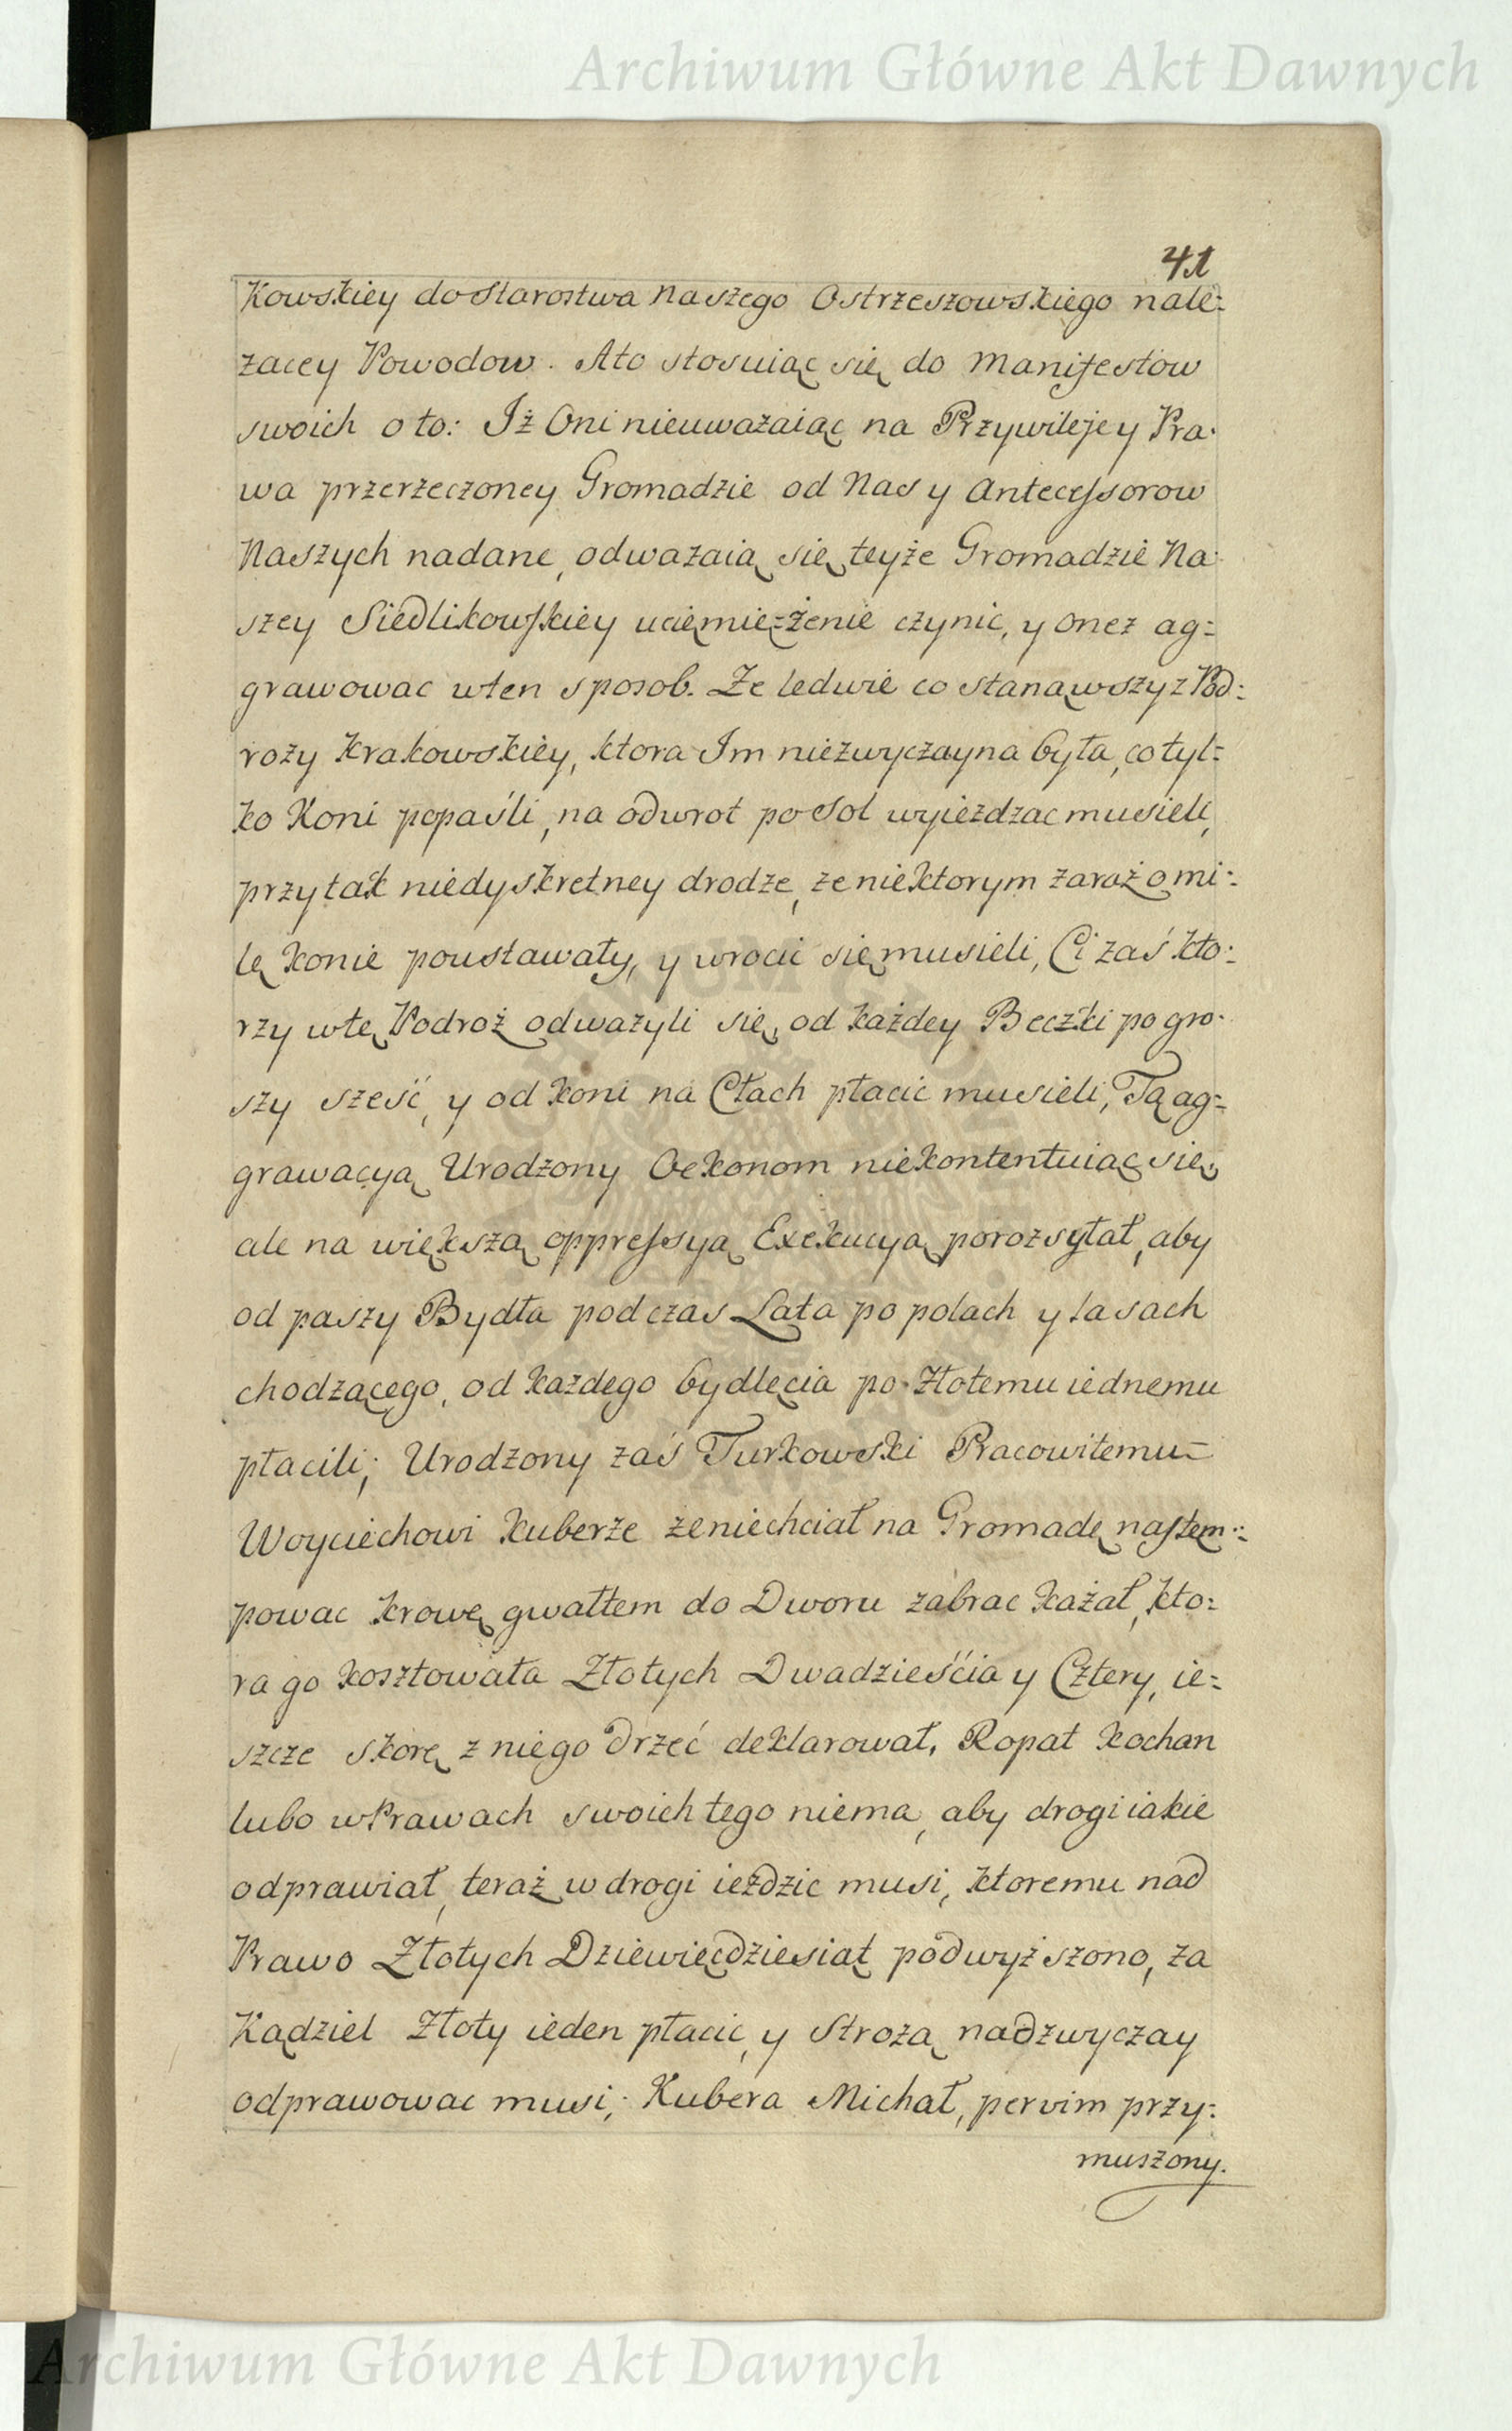 Archiwum Główne Akt Dawnych
41
Kowskiey do Starostwa Naszego Ostrzeszowskiego nale=
zacey Powodow. Ato stosuiąc się do Manifestow
swoich o to: Iż Oni nieuwazaiąc na Przywileje y Pra=
wa przerzeczoney Gromadzie od Nas y Antecessorow
Naszych nadane, odwazaią się teyże Gromadzie Na=
szey Siedlikowskiey uciemięzżenie czynic, y Onez ag=
grawowac wten sposob. Ze ledwie co stanąwszy z Pod=
rozy Krakowskiey, ktora Im niezwyczayna była, co tyl=
ko Koni popaśli, na odwrot po Sol wyiezdzac musieli,
przy tak niedyskretney drodze, ze niektorym zaraz o mi=
lę Konie poustawały, y wrocic się musieli, Ci zaś kto=
rzy wtę Podroż odwazyli się, od każdey Beczki po gro=
szy sześć, y od Koni na Cłach płacic musieli, Tą ag=
grawacyą Urodzony Oekonom niekontentuiąc się,
ale na większą oppressyą Exekucyą porozsyłał, aby
od paszy Bydła podczas Lata po polach y lasach
chodzącego, od kazdego bydlęcia po Złotemu iednemu
płacili; Urodzony zaś Turkowski Pracowitemu=
Woyciechowi Kuberze ze niechciał na Gromadę nastem=
powac krowę gwałtem do Dworu zabrac kazał, kto=
ra go kosztowała Złotych Dwadzieścia y Cztery, ie=
szcze skorę z niego drzeć deklarował. Ropat Kochan
lubo w Prawach swoich tego niema, aby drogi iakie
odprawiał, teraz w drogi ieździc musi, ktoremu nad
Prawo Złotych Dziewięćdziesiąt podwyższono, za
Kądziel Złoty ieden płacic, y Strożą nadzwyczay
odprawowac musi; Kubera Michał, per vim przy=
muszony.
Archiwum Główne Akt Dawnych